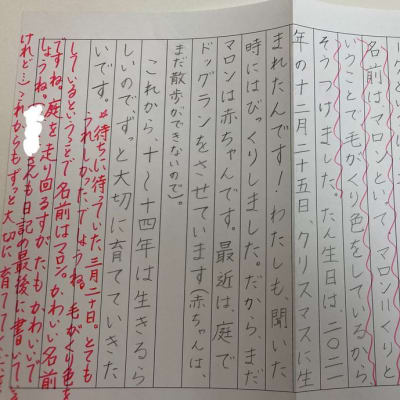 名前は、マロンといって、マロン=くりと
いうことで毛がくり色をしているから、
そうつけました。たん生日は、二〇二一
年の十二月二十五日、クリスマスに生
まれたんです!わたしも、聞いた
時にはびっくりしました。だから、まだ
マロンは赤ちゃんです。最近は、庭で
ドッグランをさせています(赤ちゃんは、
まだ散歩ができないので)。
これから、十〜十四年は生きるら
しいので、ずっと大切に育てていきた
いです。
*待ちに待っていた、三月二十日。とても
うれしかったでしょうね。毛がくり色を
しているということで名前はマロン。かわいい名前
ですね。庭を走り回るすがたもかわいいで
しょうね。
さんも日記の最後に書いている
けれど…これからもずっと大切に育てて